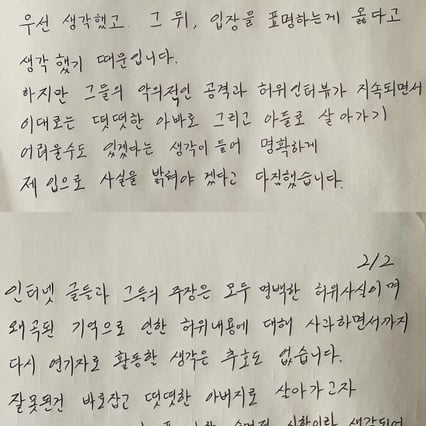 우선 생각했고. 그 뒤, 입장을 표명하는게 옳다고
생각 했기 때문입니다.
하지만 그들의 악의적인 공격과 허위인터뷰가 지속되면서
이대로는 떳떳한 아빠로 그리고 아들로 살아가기
어려울수도 있겠다는 생각이 들어 명확하게
제 입으로 사실을 밝혀야 겠다고 다짐했습니다.
2/2
인터넷 글들과 그들의 주장은 모두 명백한 허위사실이며
왜곡된 기억으로 인한 허위내용에 대해 사과하면서까지
다시 연기자로 활동할 생각은 추호도 없습니다.
잘못된건 바로잡고 떳떳한 아버지로 살아가고자